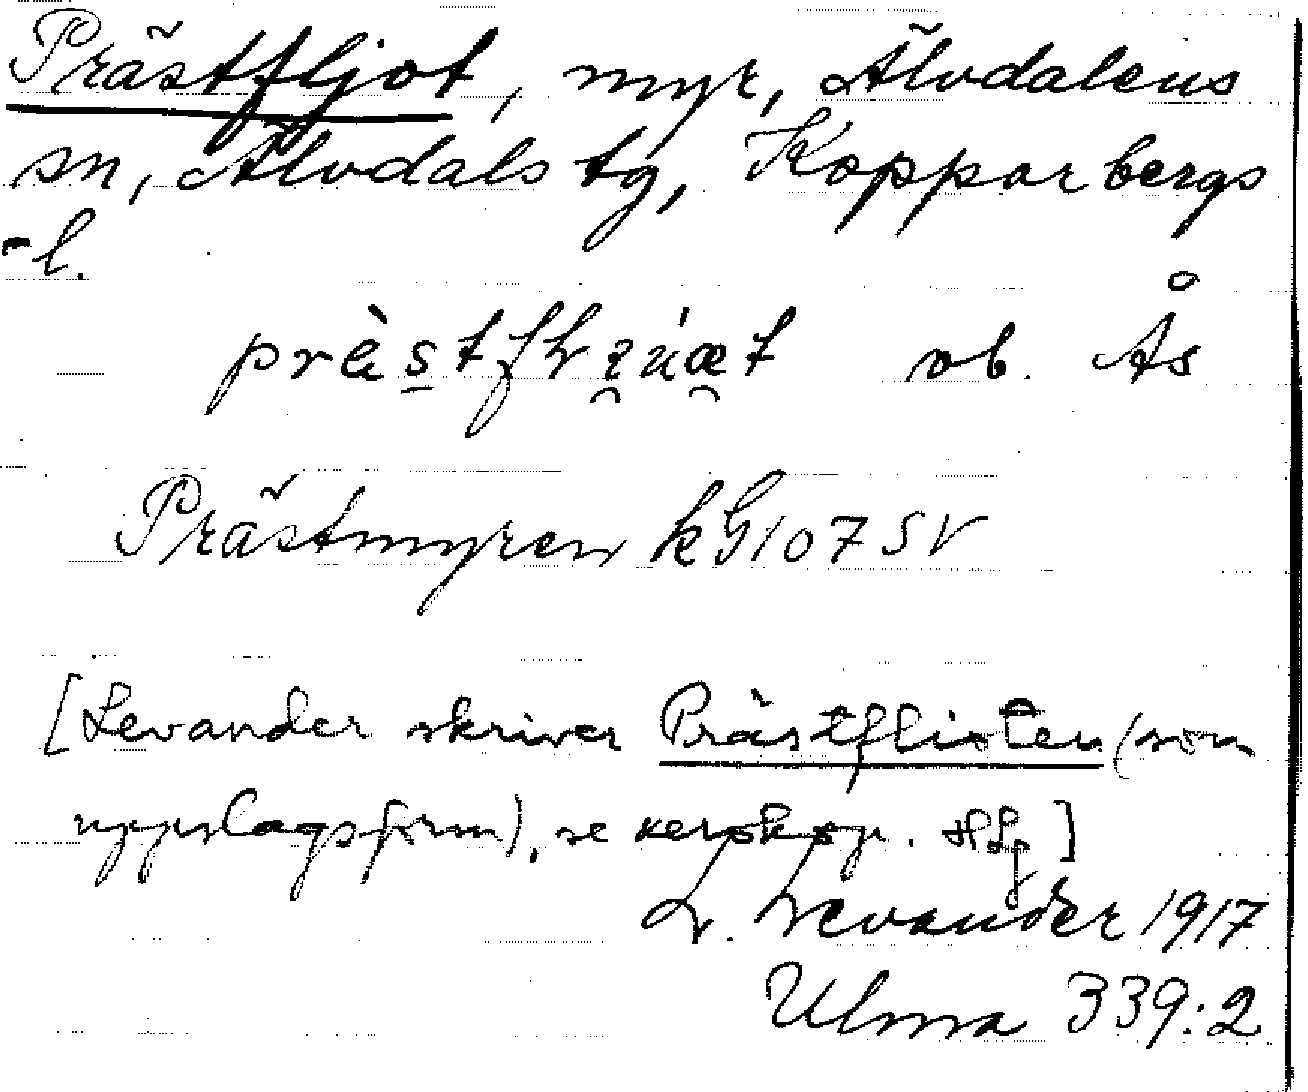 Prästfljot, myr, Älvdalens
sn, Älvdals tg, Kopparbergs
-l.
ob. Ås
Prästmyren kG107SV
[Levander skriver Prästflioten (som
uppslagsform), se xeroxkop.
L. Levander 1917
Ulma 339:2